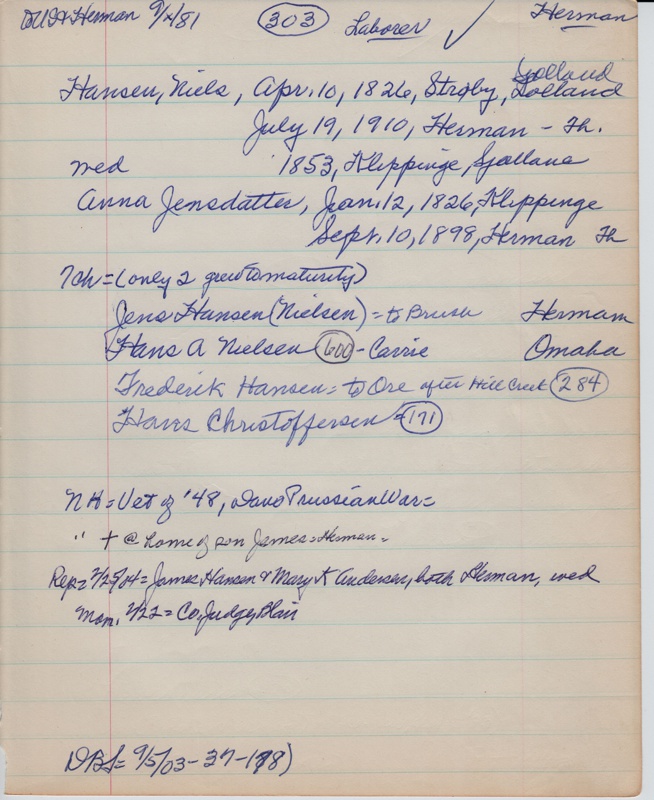 Herman 9/x/81 303 Laborer ✓ Herman
Sjolland
Hansen, Niels, Apr. 10, 1826, Strøby, Lolland
July 19, 1910, Herman - Th.
wed 1853, Klippinge, Sjolland
Anna Jensdatter, Jan. 12, 1826, Klippinge
Sept. 10, 1898, Herman Th
7ch = (only 2 grew to maturity)
Jens Hansen (Nielsen) = to Brush Herman
Hans A Nielsen 600 - Carrie Omaha
Frederik Hansen = to Ore after Hill Creek 284
Hans Christoffersen = 171
NH = Vet of '48, Dano Prussian War =
" + @ home of son James = Herman =
Rep = 2/25/04 = James Hansen & Mary K Andersen, both Herman, wed
Mon. 2/22 = Co. Judge, Blair
DBS = 9/5/03 - 37 - 198)